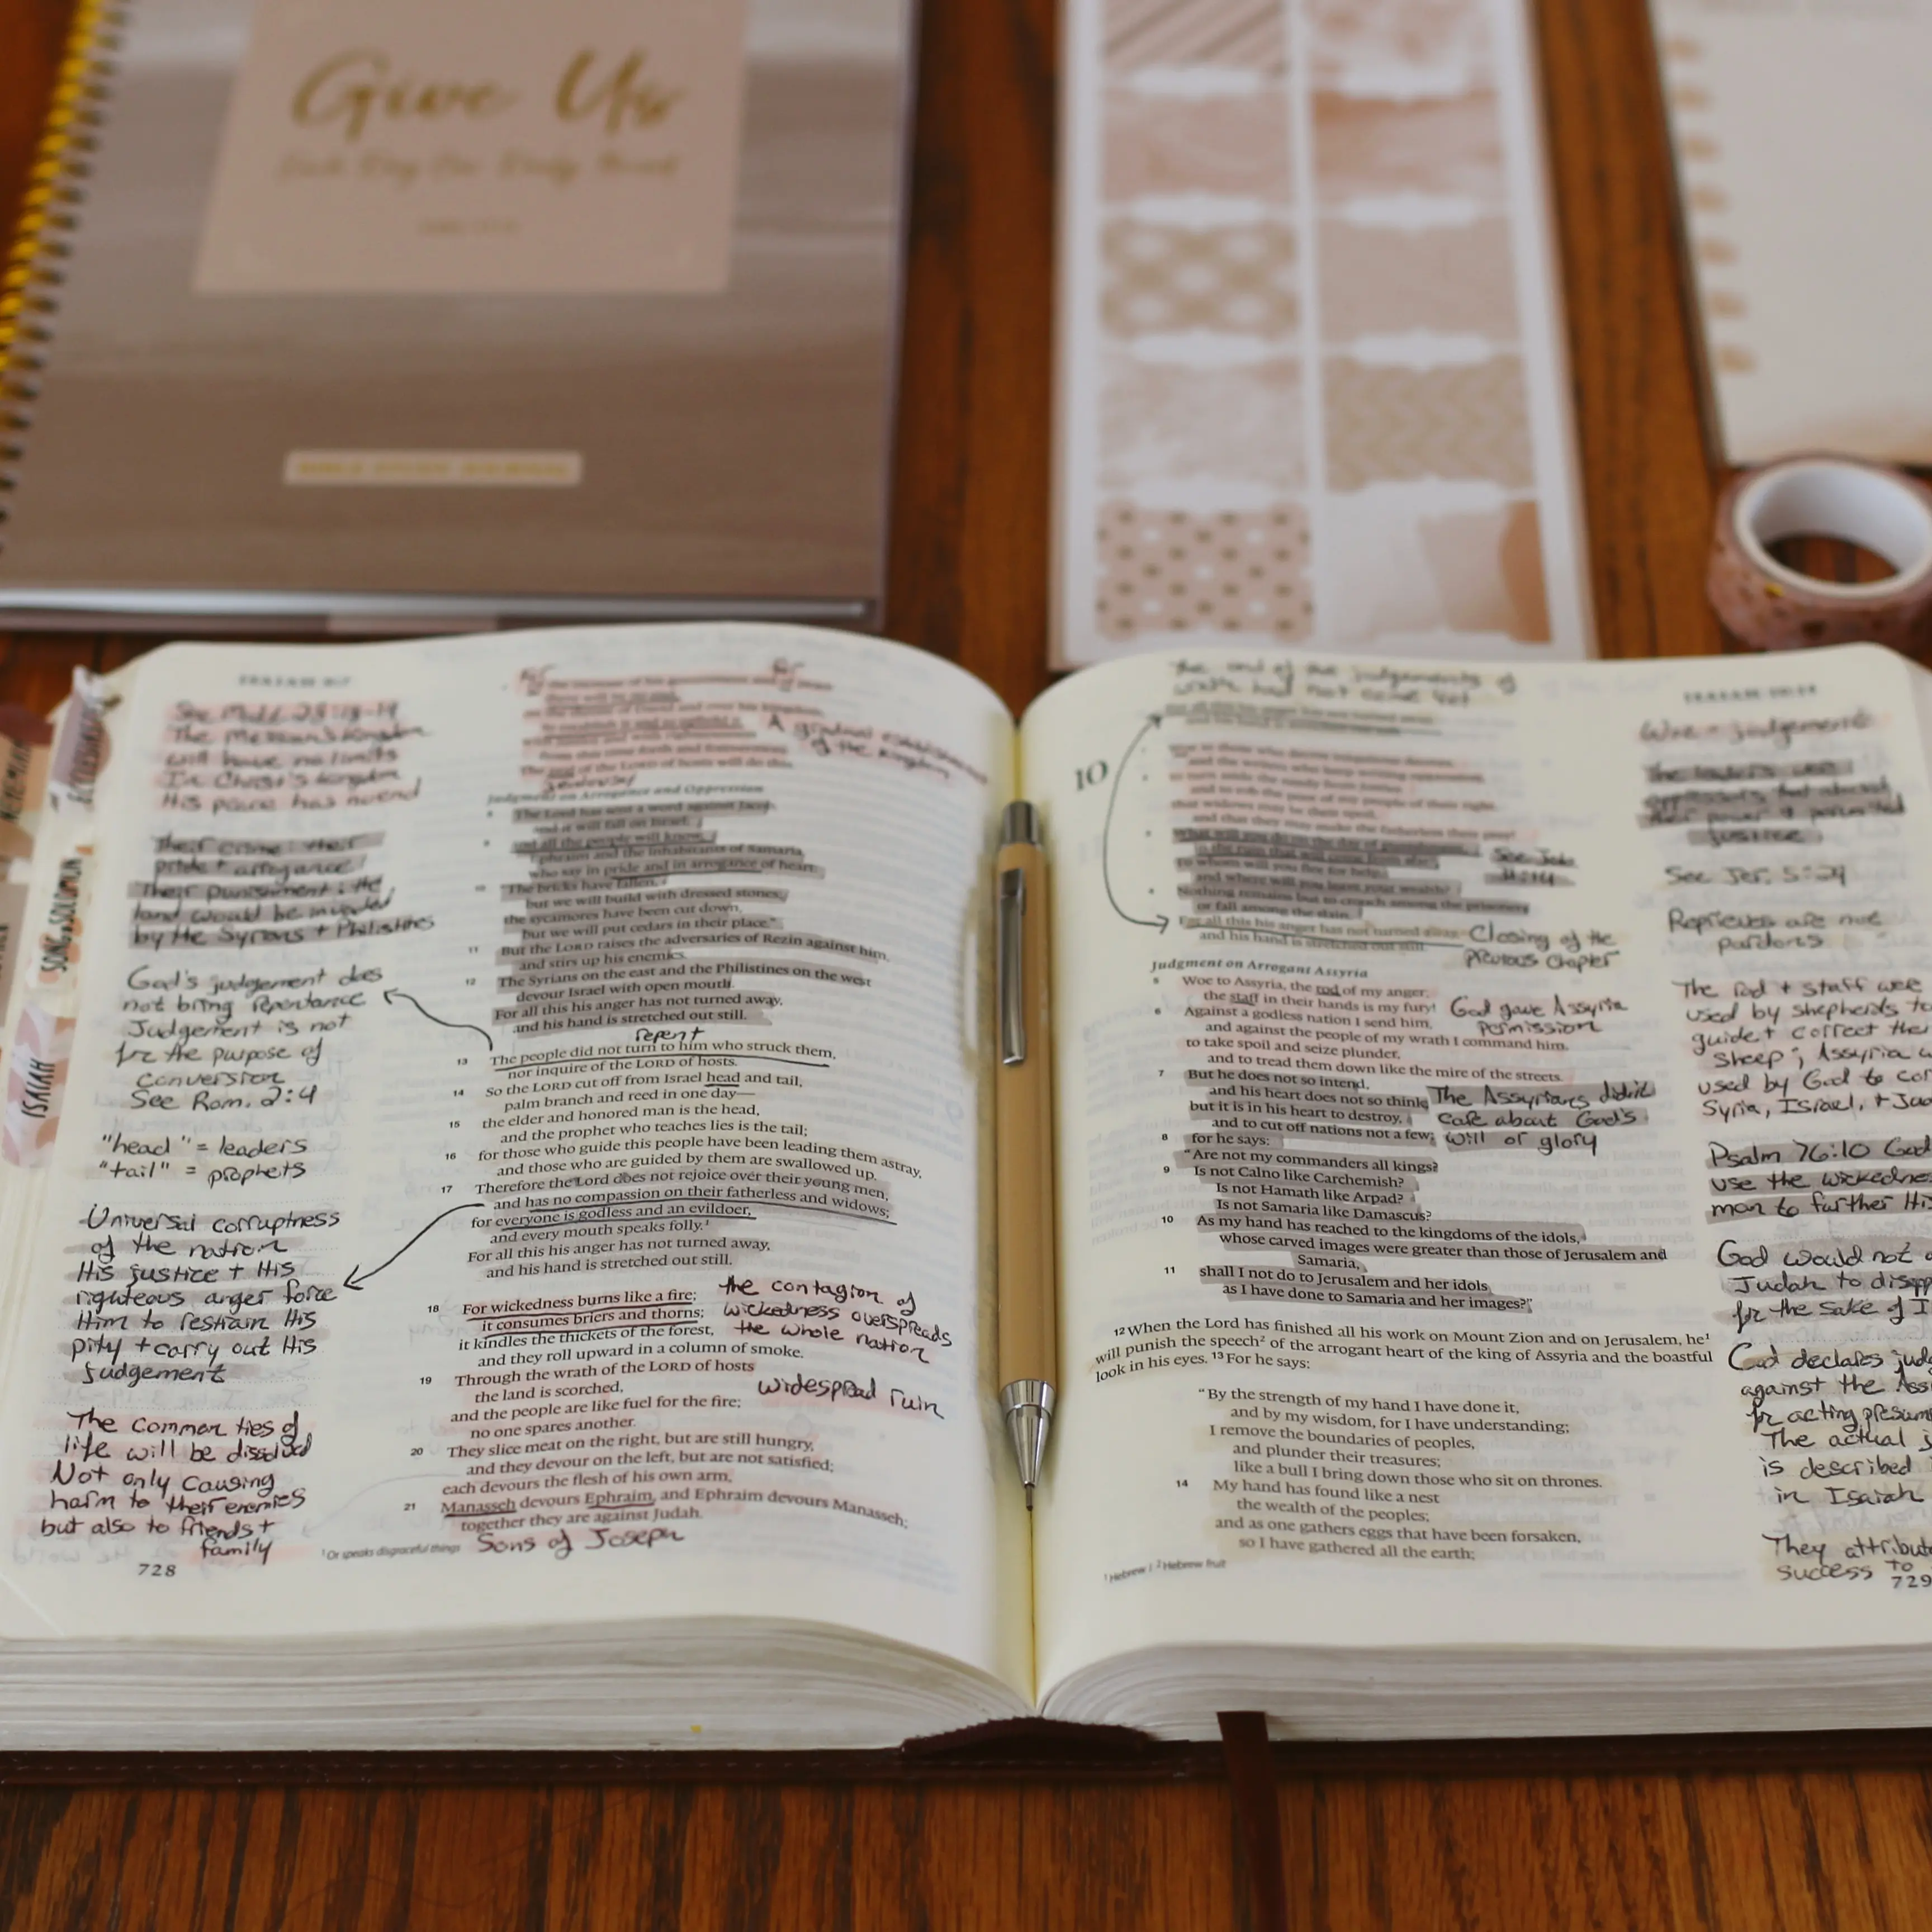 Give Us
Each Day Our Daily Bread
BIBLE STUDY JOURNAL
JEREMIAH
ECCLESIASTES
SONG OF SOLOMON
ISAIAH
ISAIAH 9:7
See Matt 28:18-19
The Messiah's kingdom
will have no limits
In Christ's kingdom
His peace has no end
Their crime: their
pride + arrogance
Their punishment: the
land would be invaded
by the Syrians + Philistines
God's judgement does
not bring repentance
Judgement is not
for the purpose of
conversion
See Rom. 2:4
"head" = leaders
"tail" = prophets
Universal corruptness
of the nation
His justice + His
righteous anger force
Him to restrain His
pity + carry out His
judgement
The common ties of
life will be dissolved
Not only causing
harm to their enemies
but also to friends +
family
728
of the increase of his government and of peace
there will be no end,
on the throne of David and over his kingdom,
to establish it and to uphold it
with justice and with righteousness
from this time forth and forevermore.
The zeal of the LORD of hosts will do this.
jealousy
A gradual establishment
of the kingdom
Judgment on Arrogance and Oppression
8 The Lord has sent a word against Jacob,
and it will fall on Israel;
9 and all the people will know,
Ephraim and the inhabitants of Samaria,
who say in pride and in arrogance of heart:
10 "The bricks have fallen,
but we will build with dressed stones;
the sycamores have been cut down,
but we will put cedars in their place."
11 But the LORD raises the adversaries of Rezin against him,
and stirs up his enemies.
12 The Syrians on the east and the Philistines on the west
devour Israel with open mouth.
For all this his anger has not turned away,
and his hand is stretched out still.
repent
13 The people did not turn to him who struck them,
nor inquire of the LORD of hosts.
14 So the LORD cut off from Israel head and tail,
palm branch and reed in one day—
15 the elder and honored man is the head,
and the prophet who teaches lies is the tail;
16 for those who guide this people have been leading them astray,
and those who are guided by them are swallowed up.
17 Therefore the Lord does not rejoice over their young men,
and has no compassion on their fatherless and widows;
for everyone is godless and an evildoer,
and every mouth speaks folly.¹
For all this his anger has not turned away,
and his hand is stretched out still.
18 For wickedness burns like a fire;
it consumes briers and thorns;
it kindles the thickets of the forest,
and they roll upward in a column of smoke.
the contagion of
wickedness overspreads
the whole nation
19 Through the wrath of the LORD of hosts
the land is scorched,
and the people are like fuel for the fire;
no one spares another.
widespread ruin
20 They slice meat on the right, but are still hungry,
and they devour on the left, but are not satisfied;
each devours the flesh of his own arm,
21 Manasseh devours Ephraim, and Ephraim devours Manasseh;
together they are against Judah.
Sons of Joseph
¹ Or speaks disgraceful things
the end of the judgements of
wrath had not come yet
For all this his anger has not turned away,
and his hand is stretched out still.
10
Woe to those who decree iniquitous decrees,
and the writers who keep writing oppression,
2 to turn aside the needy from justice
and to rob the poor of my people of their right,
that widows may be their spoil,
and that they may make the fatherless their prey!
3 What will you do on the day of punishment,
in the ruin that will come from afar?
To whom will you flee for help,
and where will you leave your wealth?
4 Nothing remains but to crouch among the prisoners
or fall among the slain.
For all this his anger has not turned away,
and his hand is stretched out still.
Closing of the
previous chapter
Judgment on Arrogant Assyria
5 Woe to Assyria, the rod of my anger;
the staff in their hands is my fury!
6 Against a godless nation I send him,
and against the people of my wrath I command him,
to take spoil and seize plunder,
and to tread them down like the mire of the streets.
God gave Assyria
permission
7 But he does not so intend,
and his heart does not so think;
but it is in his heart to destroy,
and to cut off nations not a few;
The Assyrians didn't
care about God's
will or glory
8 for he says:
"Are not my commanders all kings?
9 Is not Calno like Carchemish?
Is not Hamath like Arpad?
Is not Samaria like Damascus?
10 As my hand has reached to the kingdoms of the idols,
whose carved images were greater than those of Jerusalem and
Samaria,
11 shall I not do to Jerusalem and her idols
as I have done to Samaria and her images?"
12 When the Lord has finished all his work on Mount Zion and on Jerusalem, he¹
will punish the speech² of the arrogant heart of the king of Assyria and the boastful
look in his eyes. 13 For he says:
"By the strength of my hand I have done it,
and by my wisdom, for I have understanding;
I remove the boundaries of peoples,
and plunder their treasures;
like a bull I bring down those who sit on thrones.
14 My hand has found like a nest
the wealth of the peoples;
and as one gathers eggs that have been forsaken,
so I have gathered all the earth;
¹ Hebrew I ² Hebrew fruit
ISAIAH 10:14
Woe = judgement
The leaders were
oppressors that abused
their power + perverted
justice
See Jer. 5:29
Reprieves are not
pardons
The rod + staff were
used by shepherds to
guide + correct their
sheep; Assyria
used by God to
Syria, Israel, +
Psalm 76:10 God
use the
man to further
God would not
Judah to
for the sake of
God declares
against the
for acting
The actual
is described
in Isaiah
They
success to
729